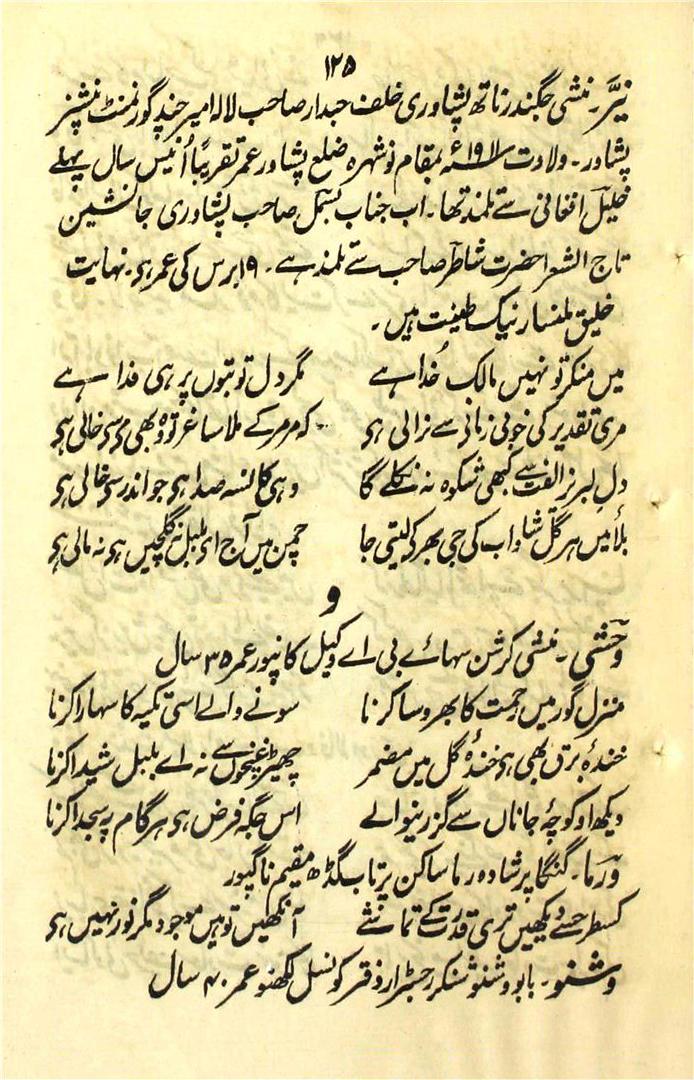 ۱۲۵
نیّر۔ منشی جگندر ناتھ پشاوری خلف جدار صاحب لالہ امیر چند گورنمنٹ پنشنر
پشاور۔ ولادت ۱۹۱۱ء بمقام نوشہرہ ضلع پشاور عمر تقریباً اُنیس سال پہلے
خلیل افغانی سے تلمذ تھا۔ اب جناب بسمل صاحب پشاوری جانشین
تاج الشعرا حضرت شاطر صاحب سے تلمذ ہے۔ ۱۹ برس کی عمر ہی۔ نہایت
خلیق ملنسار نیک طینت ہیں۔
میں منکر تو نہیں مالک خُدا ہے مگر دل تو بتوں پر ہی فدا ہے
مری تقدیر کی خوبی زمانی سے نرالی ہی کہ مرمر کے ملا ساغر تو وہ بھی مے سی خالی ہی
دلِ لبریز الفت سے کبھی شکوہ نہ نکلے گا وہی کاسہ صدا ہی جو اندر سی خالی ہی
بلائیں ہر گل شاداب کی جی بھر کی لیتی جا چمن میں آج ای بلبل نہ گلچیں ہی نہ مالی ہی
و
وحشی۔ منشی کرشن سہائے بی اے وکیل کانپور عمر ۳۵ سال
منزل گور میں رحمت کا بھروسا کرنا سونے والے اسی تکیہ کا سہارا کرنا
خندۂ برق بھی ہی خندۂ گل میں مضمر چھیڑ غنچوں سے نہ اے بلبل شیدا کرنا
دیکھ او کوچۂ جاناں سے گزرنیوالے اس جگہ فرض ہی ہر گام پہ سجدا کرنا
ورما۔ گنگا پرشاد ورما ساکن پرتاب گڈھ مقیم ناگپور
کسطرح سے دیکھیں تری قدرت کے تماشے آنکھیں تو ہیں موجود مگر نور نہیں ہی
وشنو۔ بابو وشنو شنکر رجسٹرار دفتر کونسل لکھنو عمر ۴۰ سال